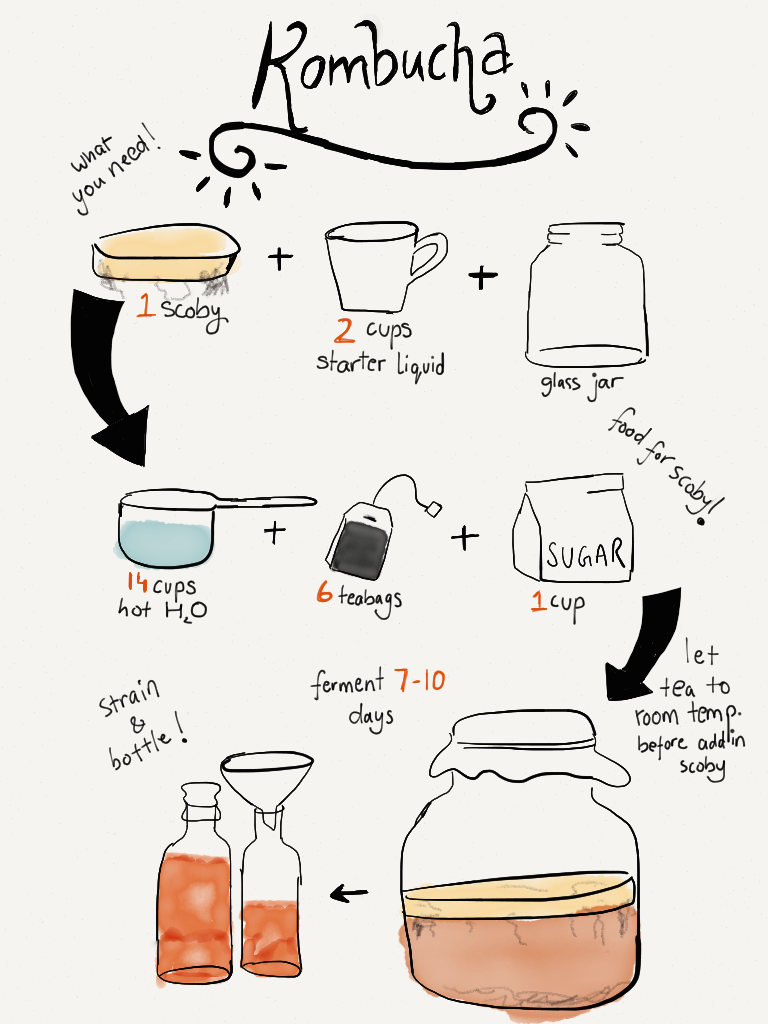 Kombucha
what
you need!
1 scoby
2 cups
starter liquid
glass jar
food for scoby!
14 cups
hot H2O
6 teabags
SUGAR
1 cup
let
tea to
room temp.
before addin
scoby
ferment 7-10
days
strain
&
bottle!